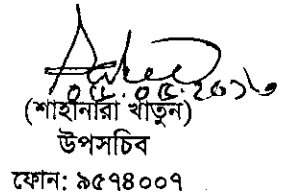 ০৫.০৫.২০১৬
(শাহানারা খাতুন)
উপসচিব
ফোন: ৯৫৭৪০০৭